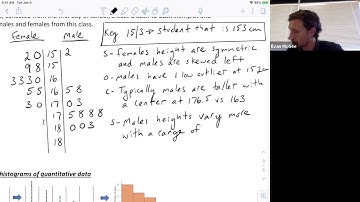 9:41 AM Tue Jan 5
males and females from this class.
Key 15|3 → student that is 153 cm
Female Male
2 0 | 15 | 2
9 8 | 15 |
3 3 3 0 | 16 |
5 5 | 16 | 5 8
3 0 | 17 | 0 3
17 | 5 8 8 8
18 | 0 0 3
18 |
S - Females height are symmetric
and males are skewed left
O - males have 1 low outlier at 152cm
C - Typically males are taller with
a center at 176.5 vs 163
S - Males heights vary more
with a range of
histograms of quantitative data
Evan McGee